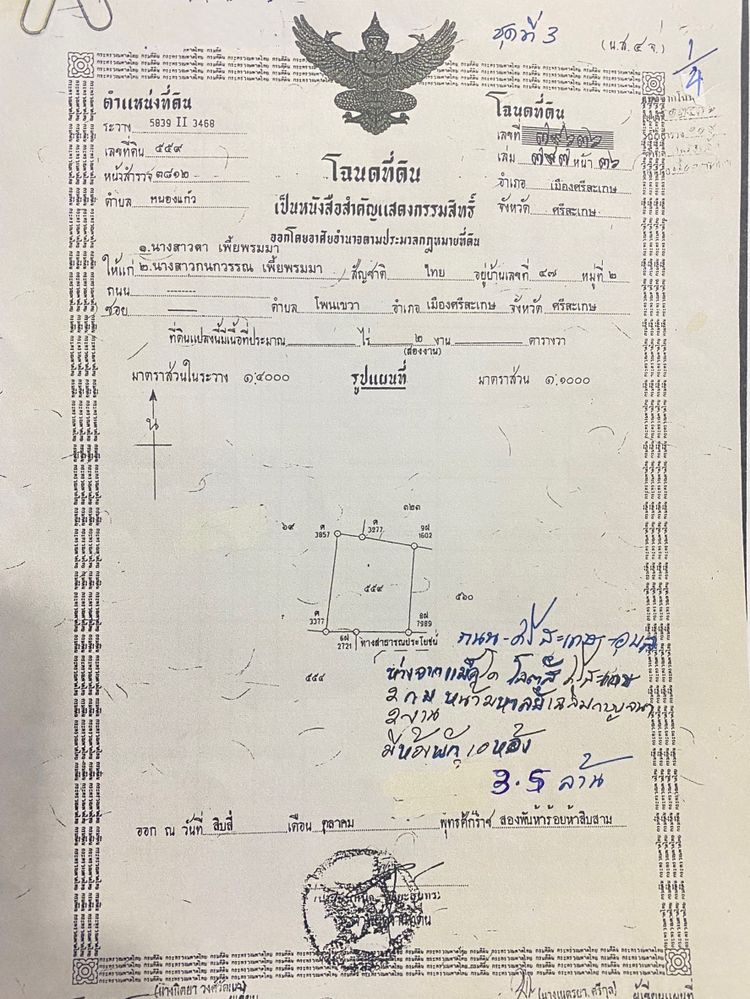 ชุดที่ 3
(น.ส. ๔ จ.)
1/4
ตำแหน่งที่ดิน
ระวาง 5839 II 3468
เลขที่ดิน ๕๕๙
หน้าสำรวจ ๓๘๑๒
ตำบล หนองแก้ว
โฉนดที่ดิน
เลขที่
เล่ม ๗๙๗ หน้า ๓๖
อำเภอ เมืองศรีสะเกษ
จังหวัด ศรีสะเกษ
โฉนดที่ดิน
เป็นหนังสือสำคัญแสดงกรรมสิทธิ์
ออกโดยอาศัยอำนาจตามประมวลกฎหมายที่ดิน
๑.นางสาวดา เพี้ยพรมมา
ให้แก่ ๒.นางสาวกนกวรรณ เพี้ยพรมมา สัญชาติ ไทย อยู่บ้านเลขที่ ๔๗ หมู่ที่ ๒
ถนน -------
ซอย ตำบล โพนเขวา อำเภอ เมืองศรีสะเกษ จังหวัด ศรีสะเกษ
ที่ดินแปลงนี้มีเนื้อที่ประมาณ ไร่ ๒ งาน ตารางวา
(สองงาน)
มาตราส่วนในระวาง ๑:๔๐๐๐ รูปแผนที่ มาตราส่วน ๑:๑๐๐๐
น
๓๒๓
๖๙
ศ 3857
ศ 3977
9ฝ 1602
๕๕๙
๕๖๐
ศ 3377
6ฝ 2721
ทางสาธารณประโยชน์
8ฝ 7989
๕๕๔
ถนน-ศรีสะเกษ-อุบล
ห่างจากแม็คโค โลตัส ศรีสะเกษ
2 กม หน้ามหาลัยเฉลิมกาญจนา
2 งาน
มีห้องพัก 10 ห้อง
3.5 ล้าน
ออก ณ วันที่ สิบสี่ เดือน ตุลาคม พุทธศักราช สองพันห้าร้อยห้าสิบสาม